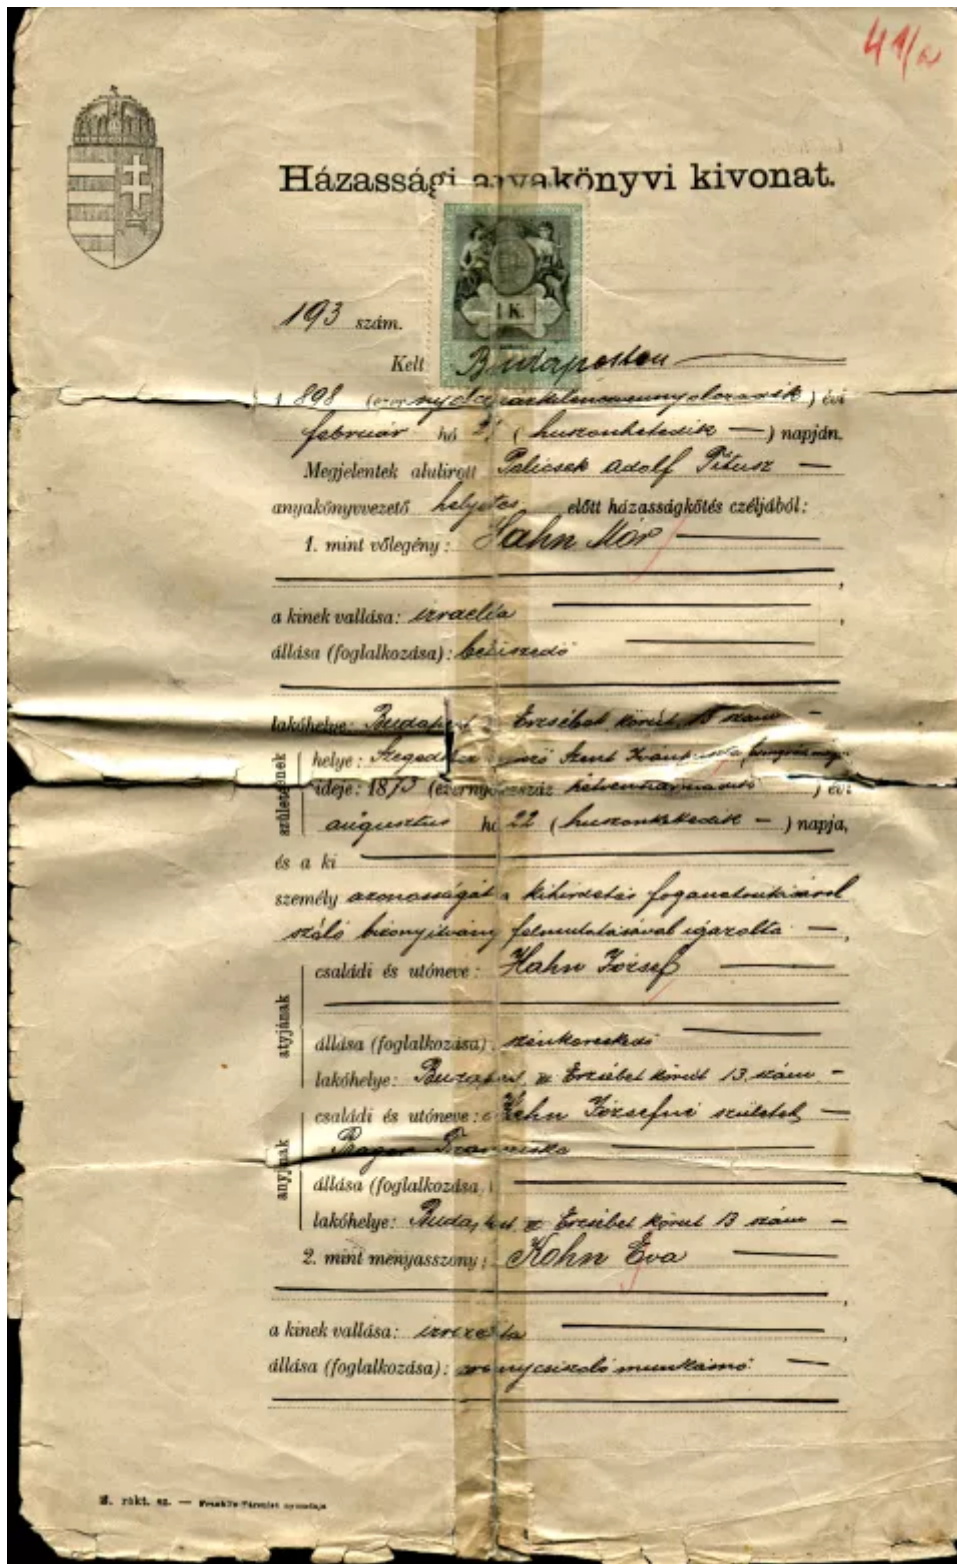 41/a
Házassági anyakönyvi kivonat.
1 K.
193 szám.
Kelt Budapesten
1898 (ezernyolczszázkilenczvennyolczadik) évi
február hó 27 (huszonhetedik —) napján.
Megjelentek alulirott Pelicsek Adolf Titusz —
anyakönyvvezető helyettes előtt házasságkötés czéljából:
1. mint vőlegény: Hahn Mór
a kinek vallása: izraelita
állása (foglalkozása):
lakóhelye: Budapest Erzsébet körut 13 szám —
születésének
helye: Szent Iván puszta
ideje: 1873 (ezernyolczszáz hetvenharmadik) évi
augusztus hó 22 (huszonkettedik —) napja,
és a ki
személy azonosságát a kihirdetés foganatositásáról
szóló bizonyitvány felmutatásával igazolta —,
atyjának
családi és utóneve: Hahn József
állása (foglalkozása): szénkereskedő
lakóhelye: Budapest, Erzsébet körut 13. szám —
anyjának
családi és utóneve: Hahn Józsefné született —
Prager Franciska
állása (foglalkozása):
lakóhelye: Budapest, Erzsébet körut 13 szám —
2. mint menyasszony: Kohn Éva
a kinek vallása: izraelita
állása (foglalkozása): munkásnő
rakt. sz. — Franklin-Társulat nyomdája